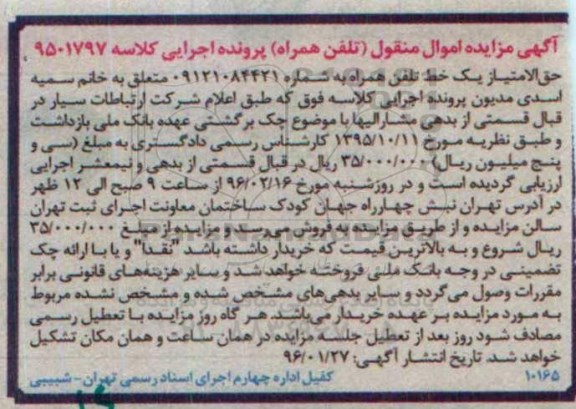 آگهی مزایده اموال منقول (تلفن همراه) پرونده اجرایی کلاسه ۹۵۰۱۷۹۷
حق‌الامتیاز یک خط تلفن همراه به شماره ۰۹۱۲۱۰۸۴۴۲۱ متعلق به خانم سمیه
اسدی مدیون پرونده اجرایی کلاسه فوق که طبق اعلام شرکت ارتباطات سیار در
قبال قسمتی از بدهی مشارالیها با موضوع چک برگشتی عهده بانک ملی بازداشت
و طبق نظریه مورخ ۱۳۹۵/۱۰/۱۱ کارشناس رسمی دادگستری به مبلغ (سی و
پنج میلیون ریال) ۳۵/۰۰۰/۰۰۰ ریال در قبال قسمتی از بدهی و نیمعشر اجرایی
ارزیابی گردیده است و در روز شنبه مورخ ۹۶/۰۲/۱۶ از ساعت ۹ صبح الی ۱۲ ظهر
در آدرس تهران نبش چهارراه جهان کودک ساختمان معاونت اجرای ثبت تهران
سالن مزایده و از طریق مزایده به فروش می‌رسد و مزایده از مبلغ ۳۵/۰۰۰/۰۰۰
ریال شروع و به بالاترین قیمت که خریدار داشته باشد "نقدا" و یا با ارائه چک
تضمینی در وجه بانک ملی فروخته خواهد شد و سایر هزینه‌های قانونی برابر
مقررات وصول می‌گردد و سایر بدهی‌های مشخص شده و مشخص نشده مربوط
به مورد مزایده بر عهده خریدار می‌باشد. هر گاه روز مزایده با تعطیل رسمی
مصادف شود روز بعد از تعطیل جلسه مزایده در همان ساعت و همان مکان تشکیل
خواهد شد. تاریخ انتشار آگهی: ۹۶/۰۱/۲۷
۱۰۱۶۵ کفیل اداره چهارم اجرای اسناد رسمی تهران - شبیبی